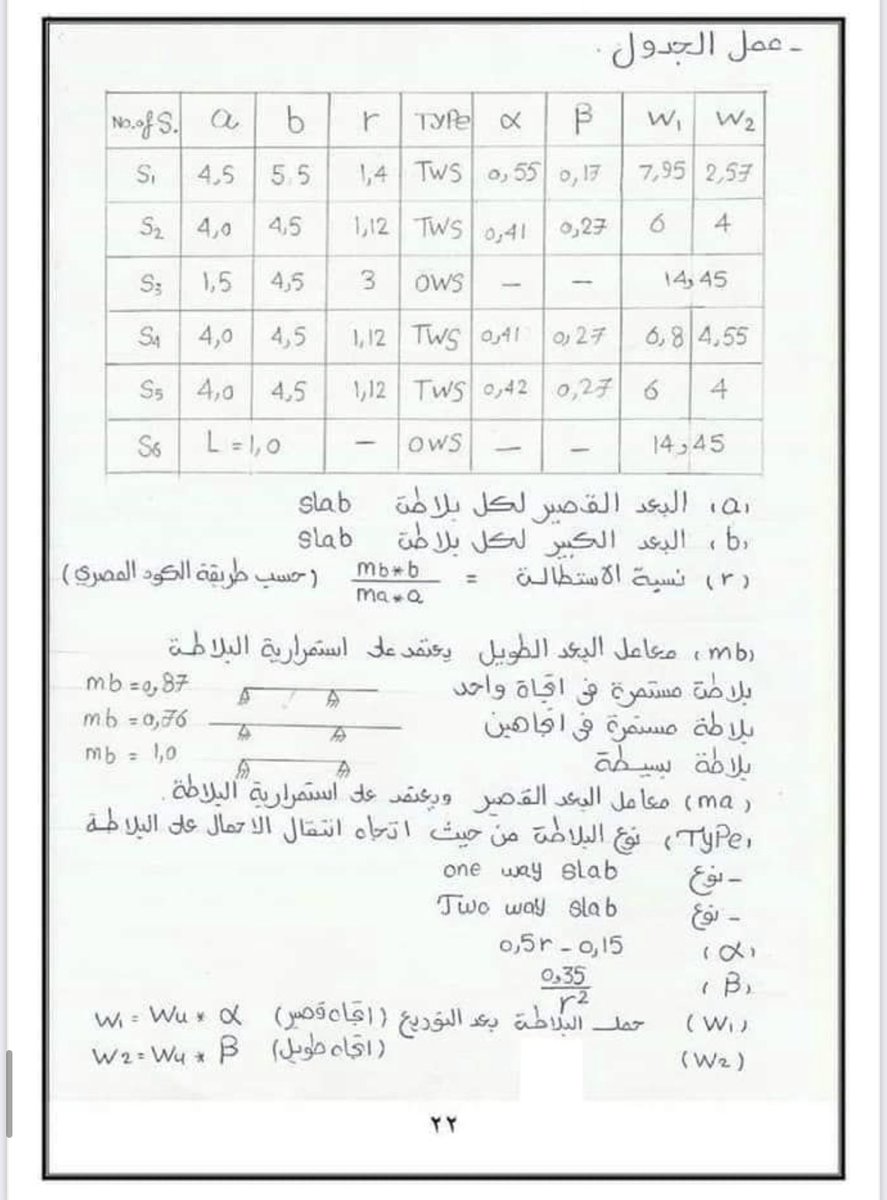 - عمل الجدول.
No. of S. a b r TYPe α β W1 W2
S1 4,5 5.5 1,4 TWS 0,55 0,17 7,95 2,57
S2 4,0 4,5 1,12 TWS 0,41 0,27 6 4
S3 1,5 4,5 3 OWS — — 14,45
S4 4,0 4,5 1,12 TWS 0,41 0,27 6,8 4,55
S5 4,0 4,5 1,12 TWS 0,42 0,27 6 4
S6 L = 1,0 — OWS — — 14,45
(a) البعد القصير لكل بلاطة slab
(b) البعد الكبير لكل بلاطة slab
(r) نسبة الاستطالة = mb*b / ma*a (حسب طريقة الكود المصري)
(mb) معامل البعد الطويل يعتمد على استمرارية البلاطة
بلاطة مستمرة فى اتجاة واحد mb = 0,87
بلاطة مستمرة فى اتجاهين mb = 0,76
بلاطة بسيطة mb = 1,0
(ma) معامل البعد القصير ويعتمد على استمرارية البلاطة.
(TyPe) نوع البلاطة من حيث اتجاه انتقال الاحمال على البلاطة
- نوع one way slab
- نوع Two way slab
(α) 0,5r - 0,15
(β) 0,35 / r2
(W1) حمل البلاطة بعد التوزيع (اتجاه قصير) W1 = Wu * α
(W2) (اتجاه طويل) W2 = Wu * β
٢٢